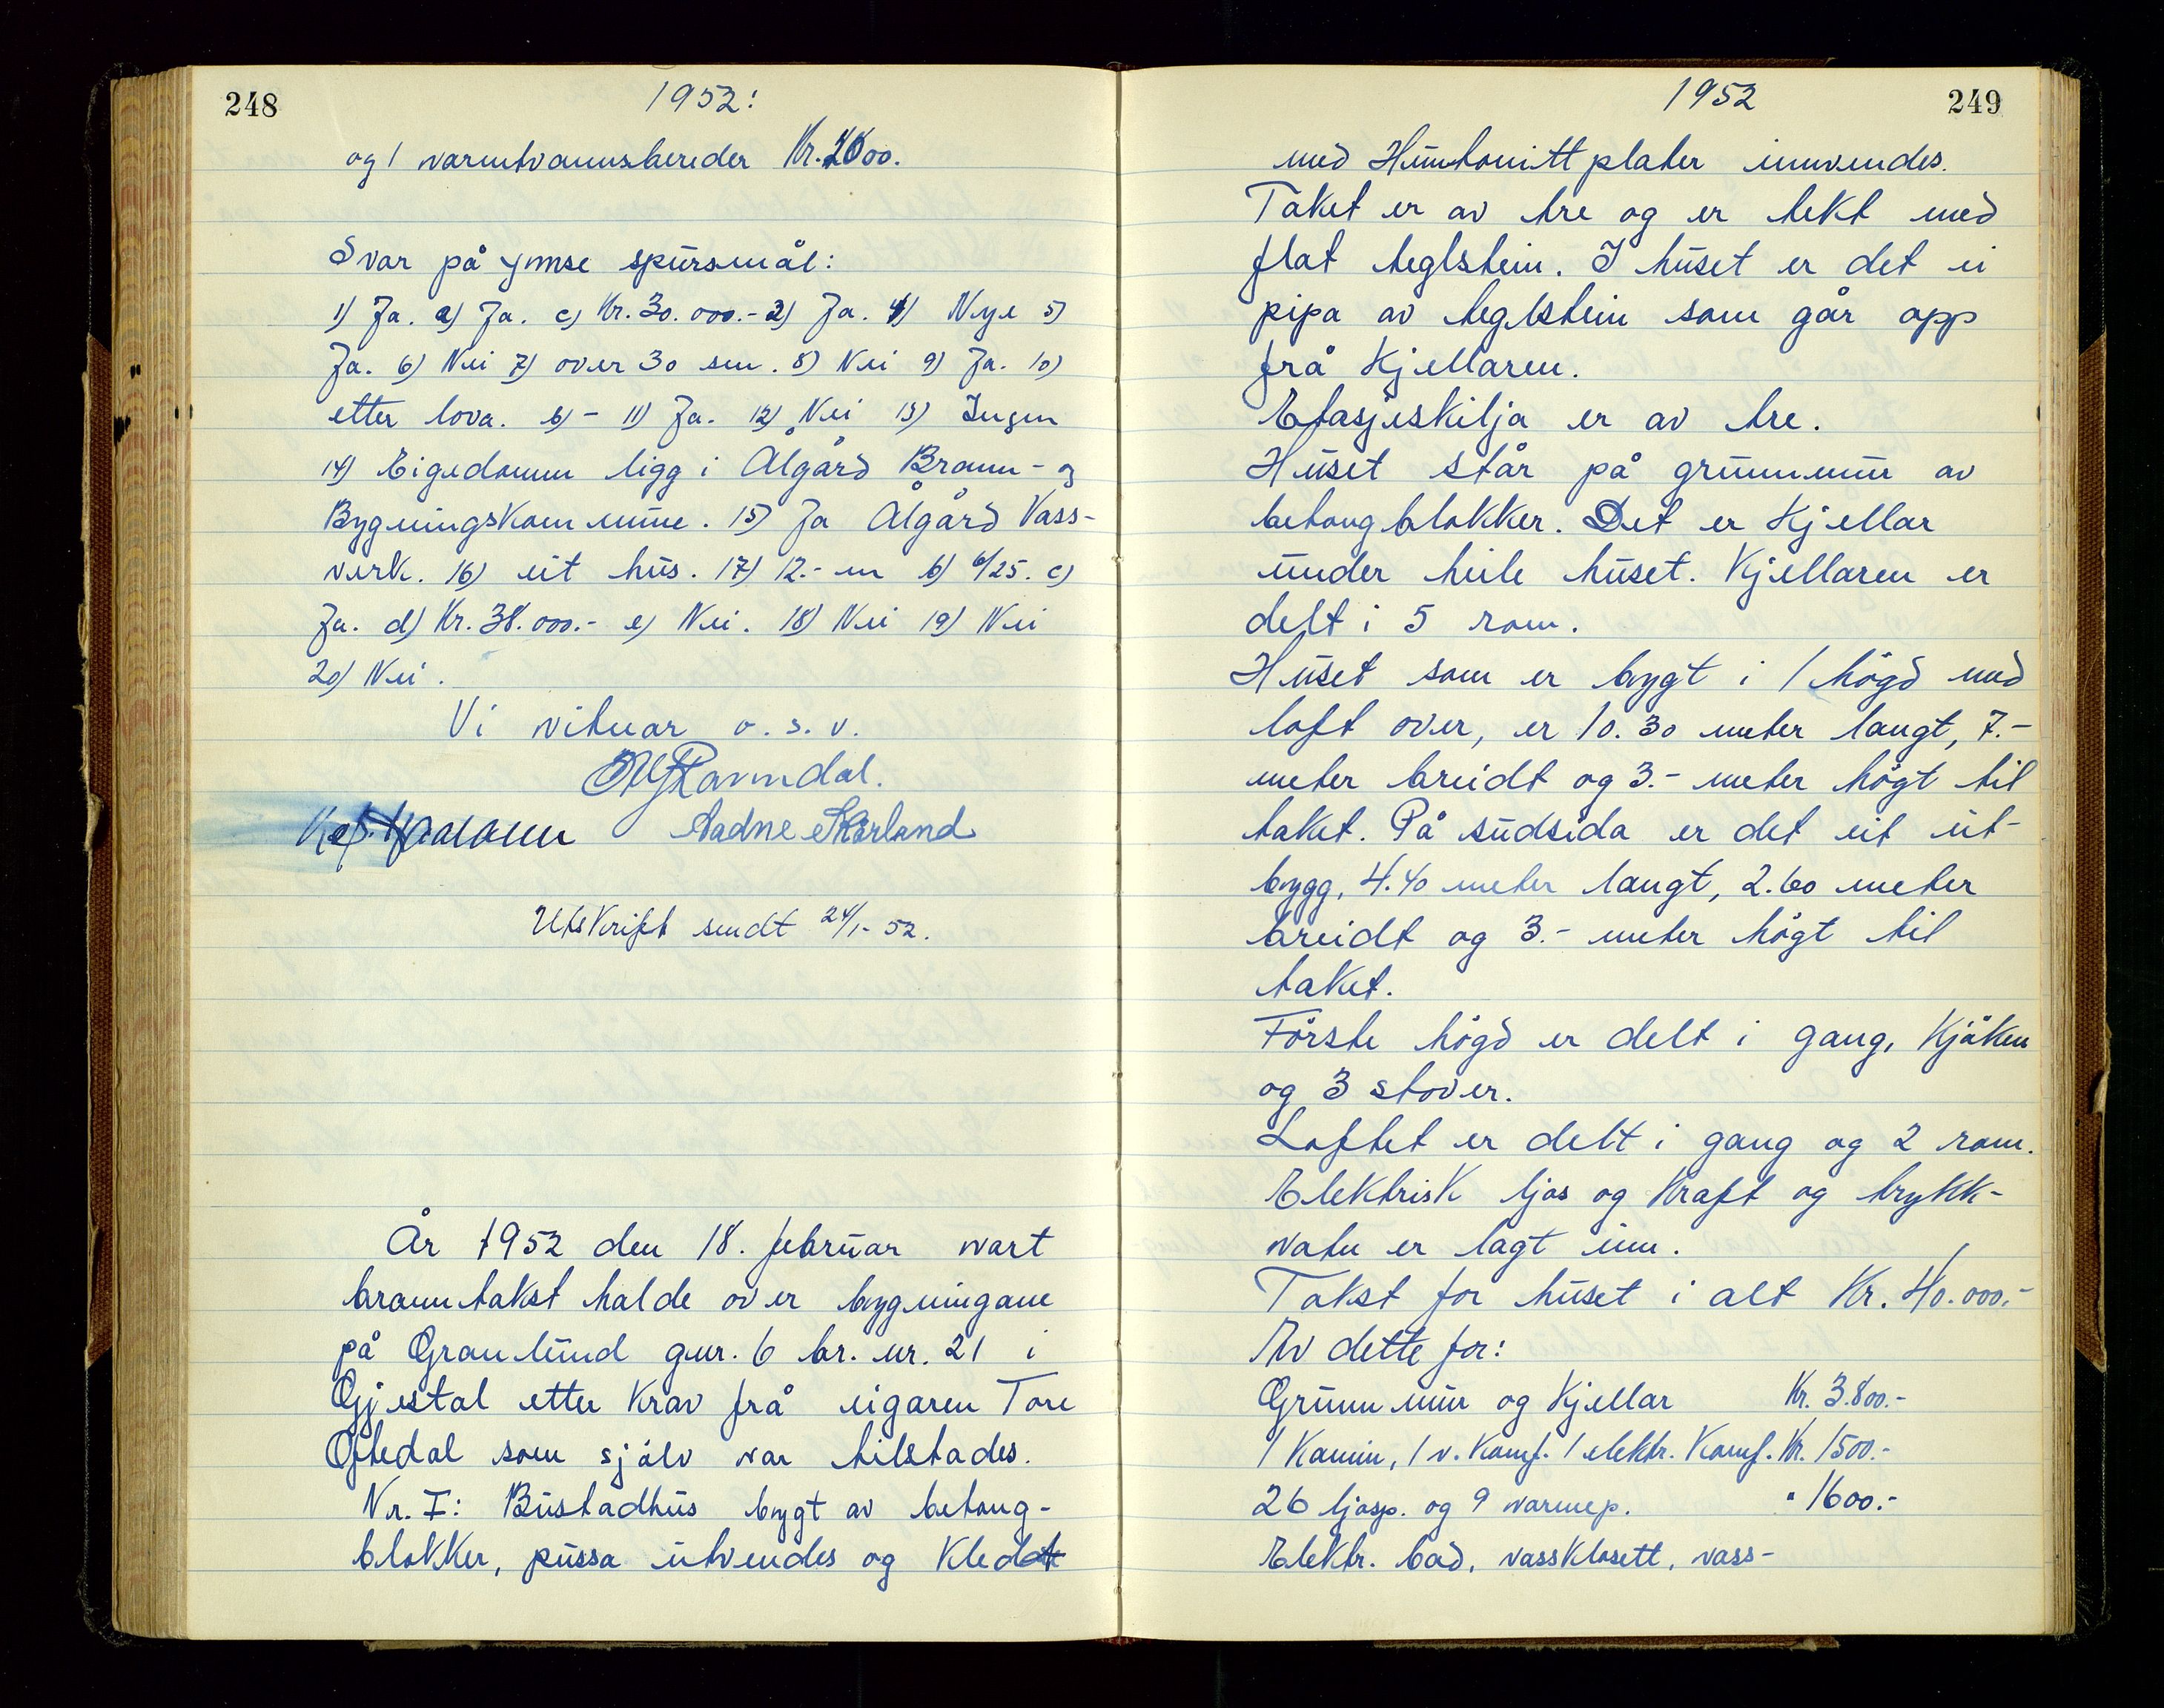 248
1952:
og 1 varmtvannsbereder Kr. 2600.
Svar på ymse spursmål:
1) Ja. a) Ja. c) Kr. 30.000.- 2) Ja. 4) Nye 5)
Ja. 6) Nei 7) over 30 sm. 8) Nei 9) Ja. 10)
etter lova. b) - 11) Ja. 12) Nei 13) Ingen
14) Eigedomm ligg i Ålgård Brann- og
Bygningskommune. 15) Ja Ålgård Vass-
verk. 16) eit hus. 17) 12.- m b) 6/25. c)
Ja. d) Kr. 38.000.- e) Nei. 18) Nei 19) Nei
20) Nei.
Vi vitnar o.s.v.
Ravndal.
Aadne Skårland
Utskrift sendt 24/1- 52.
År 1952 den 18. februar vart
branntakst halde over bygningane
på Granlund gnr. 6 br. nr. 21 i
Gjestal etter krav frå eigaren Tore
Oftedal som sjølv var tilstades.
Nr. I: Bustadhus bygt av betong-
blokker, pussa utvendes og kledt
1952
249
med Huntonitt plater innvendes.
Taket er av tre og er tekt med
flat teglstein. I huset er det ei
pipa av teglstein som går opp
frå kjellaren.
Etasjeskilja er av tre.
Huset står på grunnmur av
betongblokker. Det er kjellar
under heile huset. Kjellaren er
delt i 5 rom.
Huset som er bygt i 1 høgd med
loft over, er 10.30 meter langt, 7.-
meter breidt og 3.- meter høgt til
taket. På sudsida er det eit ut-
bygg, 4.40 meter langt, 2.60 meter
breidt og 3.- meter høgt til
taket.
Förste högd er delt i gang, kjöken
og 3 stover.
Loftet er delt i gang og 2 rom.
Elektrisk ljos og kraft og trykk-
vatn er lagt inn.
Takst for huset i alt Kr. 40.000.-
Av dette for:
Grunnmur og kjellar Kr. 3.800.-
1 Kamin, 1 v. Komf. 1 elektr. Komf. Kr. 1500.-
26 ljosp. og 9 varmep. " 1600.-
Elektr. bad, vassklosett, vass-